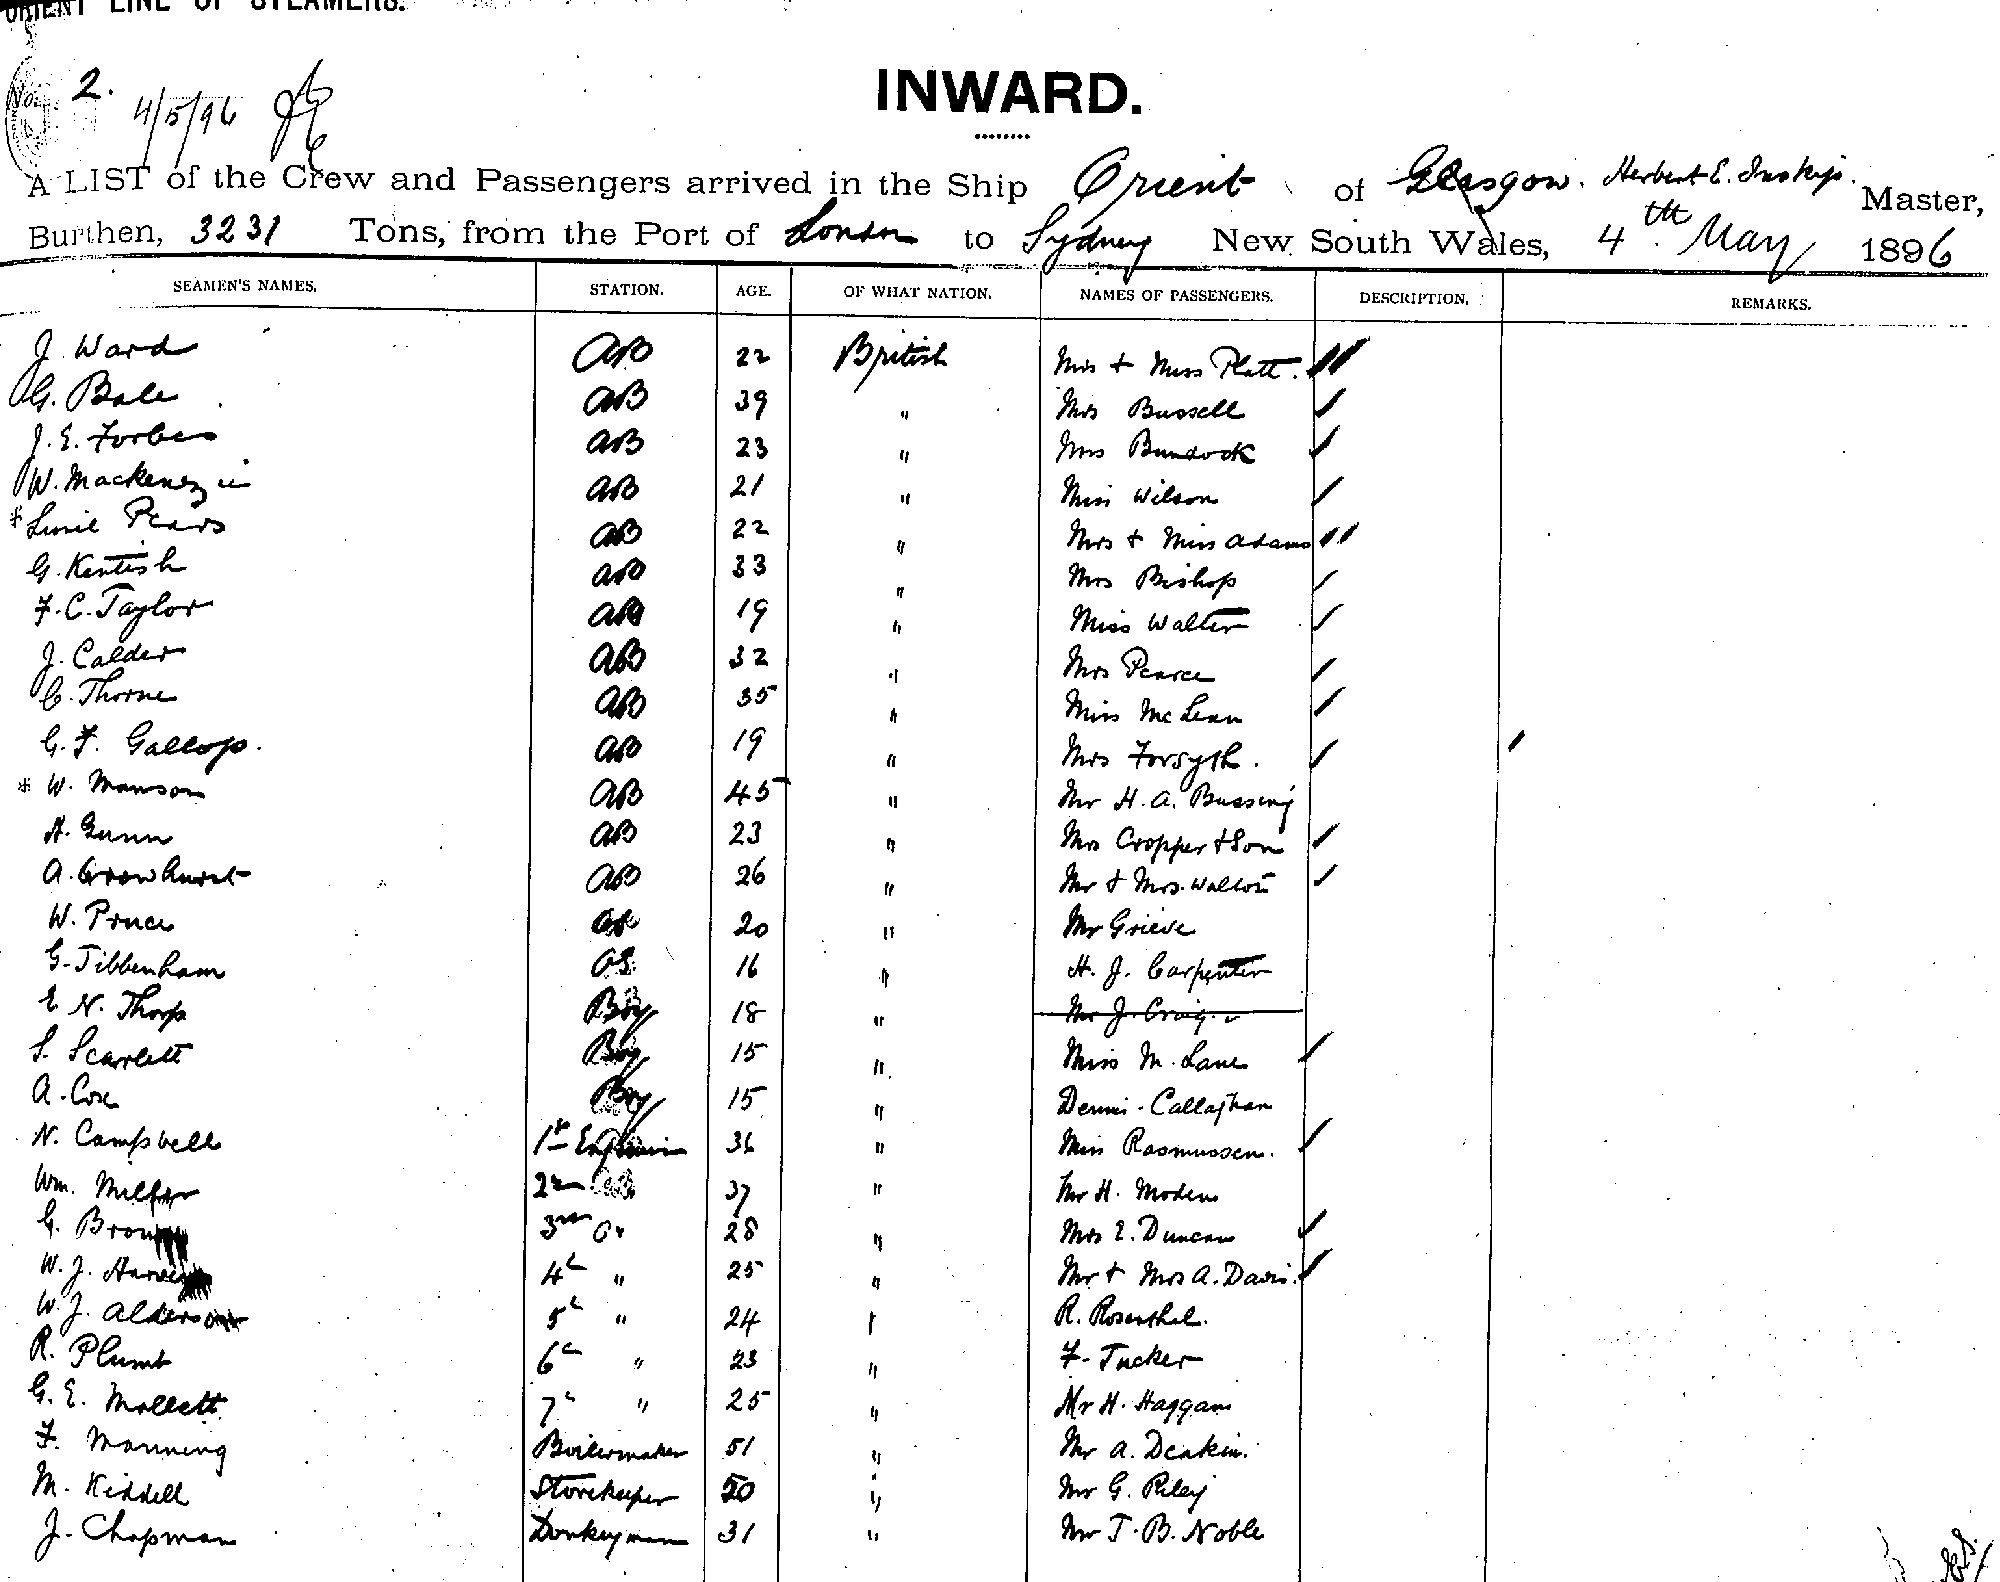 ORIENT LINE OF STEAMERS.
No. 2. 4/5/96
INWARD.
A LIST of the Crew and Passengers arrived in the Ship Orient of Glasgow. Herbert E. Inskip. Master,
Burthen, 3231 Tons, from the Port of London to Sydney New South Wales, 4th May 1896
SEAMEN'S NAMES. STATION. AGE. OF WHAT NATION. NAMES OF PASSENGERS. DESCRIPTION. REMARKS.
J. Ward AB 22 British Mrs + Miss Platt.
G. Bale AB 39 " Mrs Bussell
J. E. Forbes AB 23 " Mrs Bundock
W. Mackenzie AB 21 " Miss Wilson
* Pears AB 22 " Mrs + Miss Adams
G. Kentish AB 33 " Mrs Bishop
F. C. Taylor AB 19 " Miss Walter
J. Calder AB 32 " Mrs Pearce
C. Thorne AB 35 " Miss McLean
G. F. Gallop. AB 19 " Mrs Forsyth.
* W. Manson AB 45 " Mr H. A. Bussing
A. Gunn AB 23 " Mrs Cropper + Son
A. Crowhurst AB 26 " Mr + Mrs. Walton
W. Prince 20 " Mr Grieve
G. Tibbenham OS 16 " H. J. Carpenter
E N. Thorp Boy 18 " Mr J. Craig
S. Scarlett Boy 15 " Miss M. Lane
A. Cox Boy 15 " Dennis Callaghan
N. Campbell 1st Engineer 36 " Miss Rasmussen.
Wm. Miller 2nd 37 " Mr H. Modens
G. Brown 3rd 28 " Mrs E. Duncan
W. J. Harvey 4th " 25 " Mr + Mrs A. Davis.
W. J. Alderson 5th " 24 " R. Rosenthal.
R. Plumb 6th " 23 " F. Tucker
G. E. Mollett 7th " 25 " Mr H. Haggan
F. Manning Boilermaker 51 " Mr A. Deakin.
M. Kiddell Storekeeper 50 " Mr G. Riley
J. Chapman Donkeyman 31 " Mr T. B. Noble